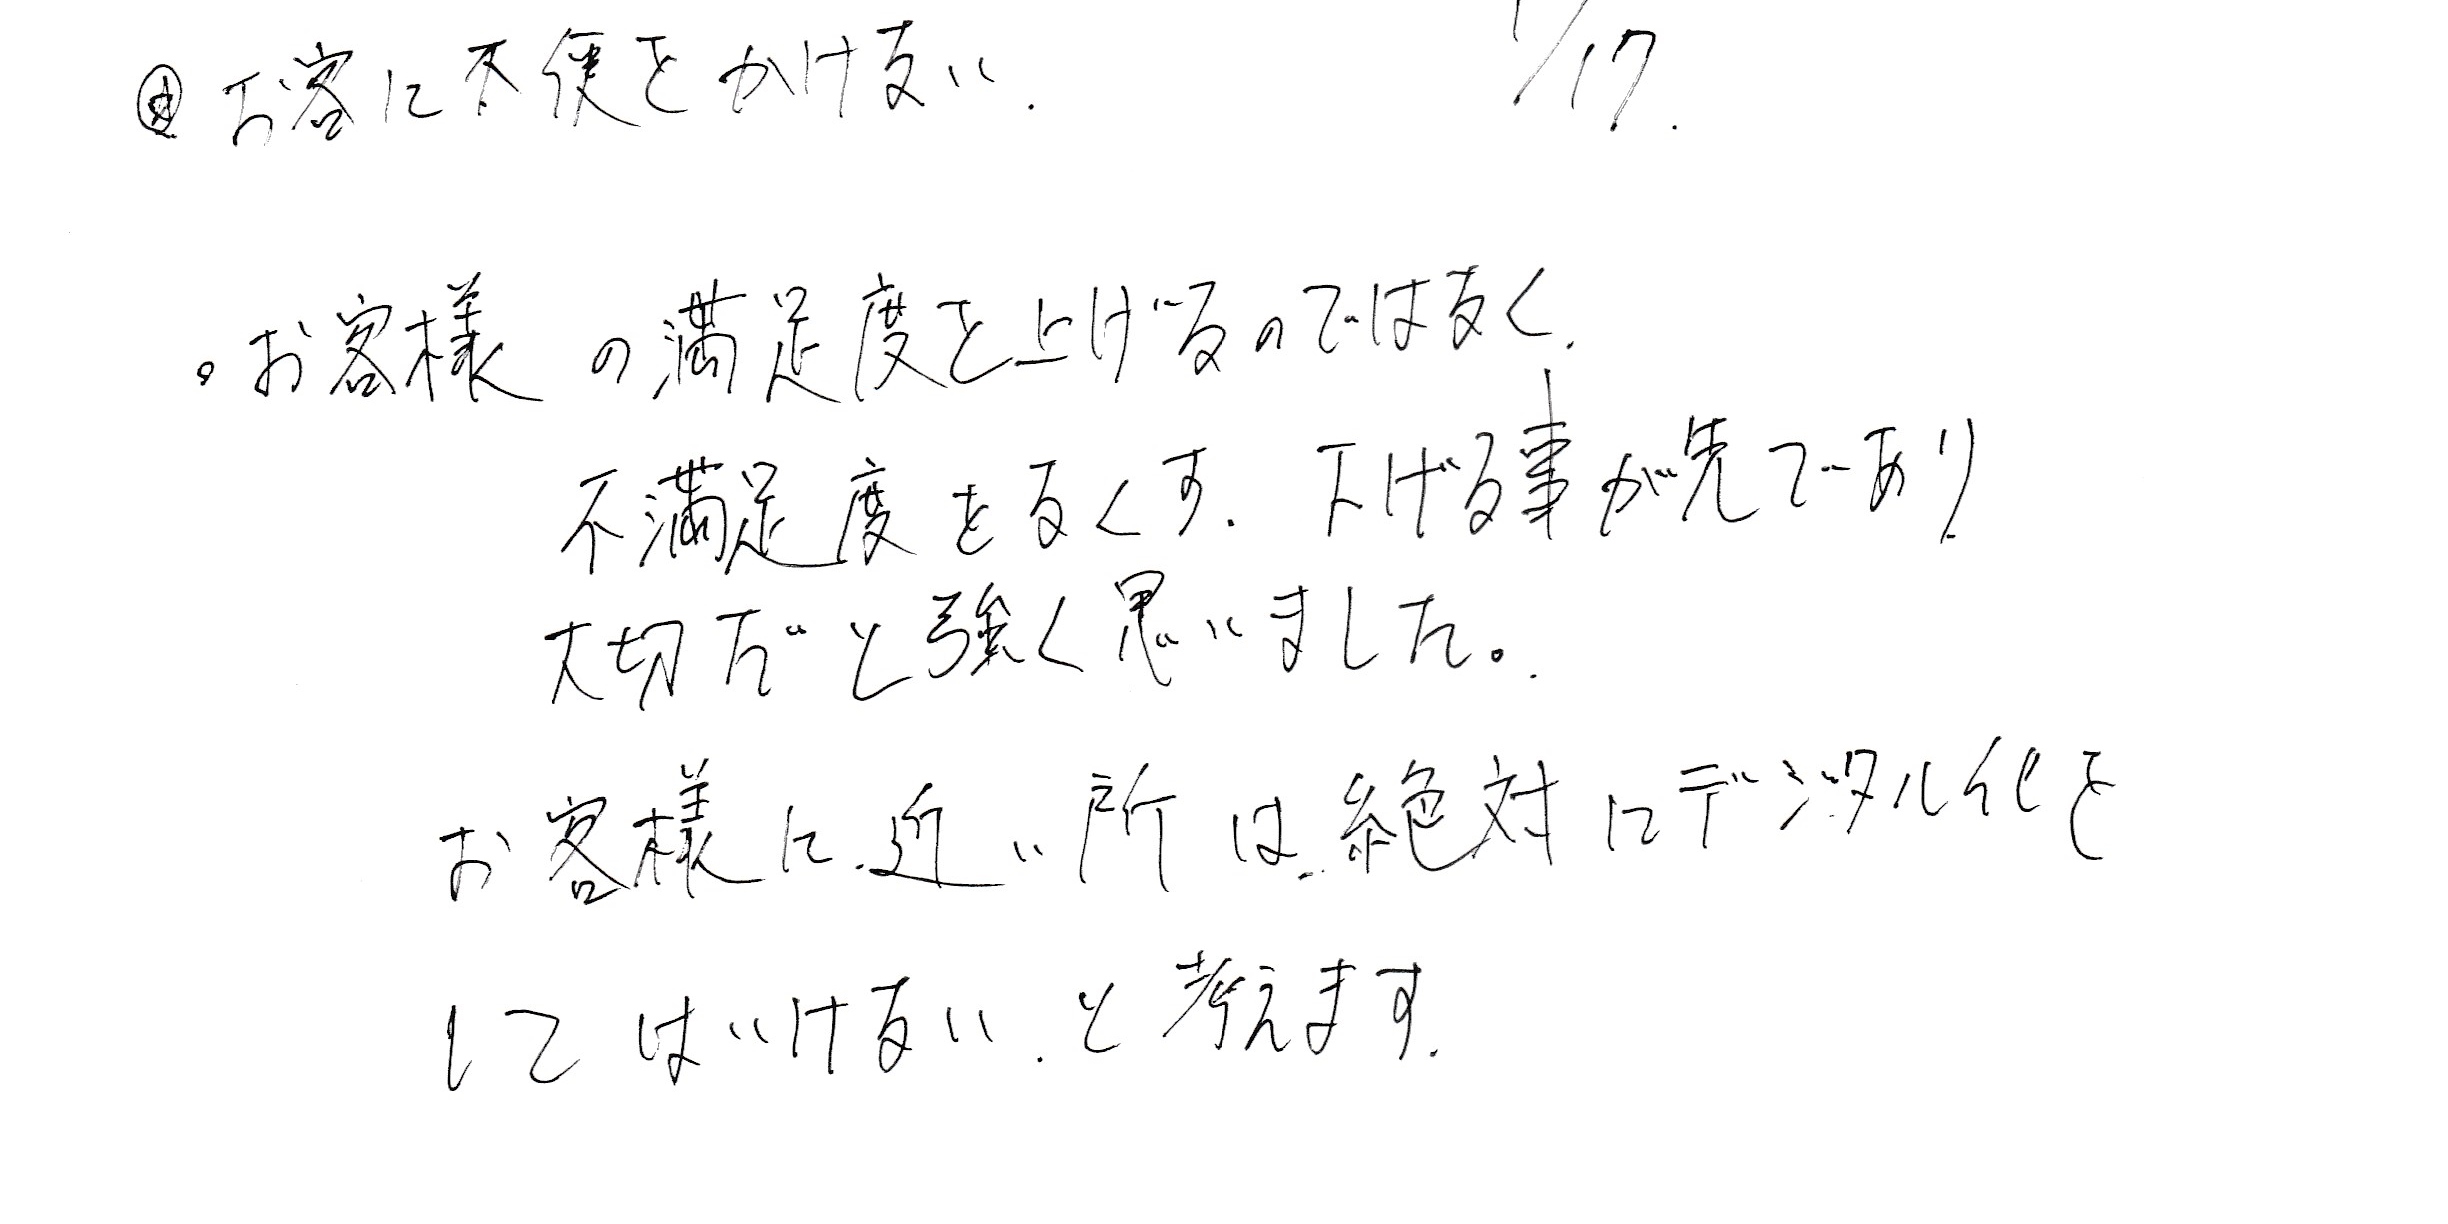 お客に不便をかけない. 1/17.
。お客様の満足度を上げるのではなく.
不満足度をなくす. 下げる事が先であり
大切だと強く思いました。
お客様に近い所は絶対にデジタル化を
してはいけない.と考えます.